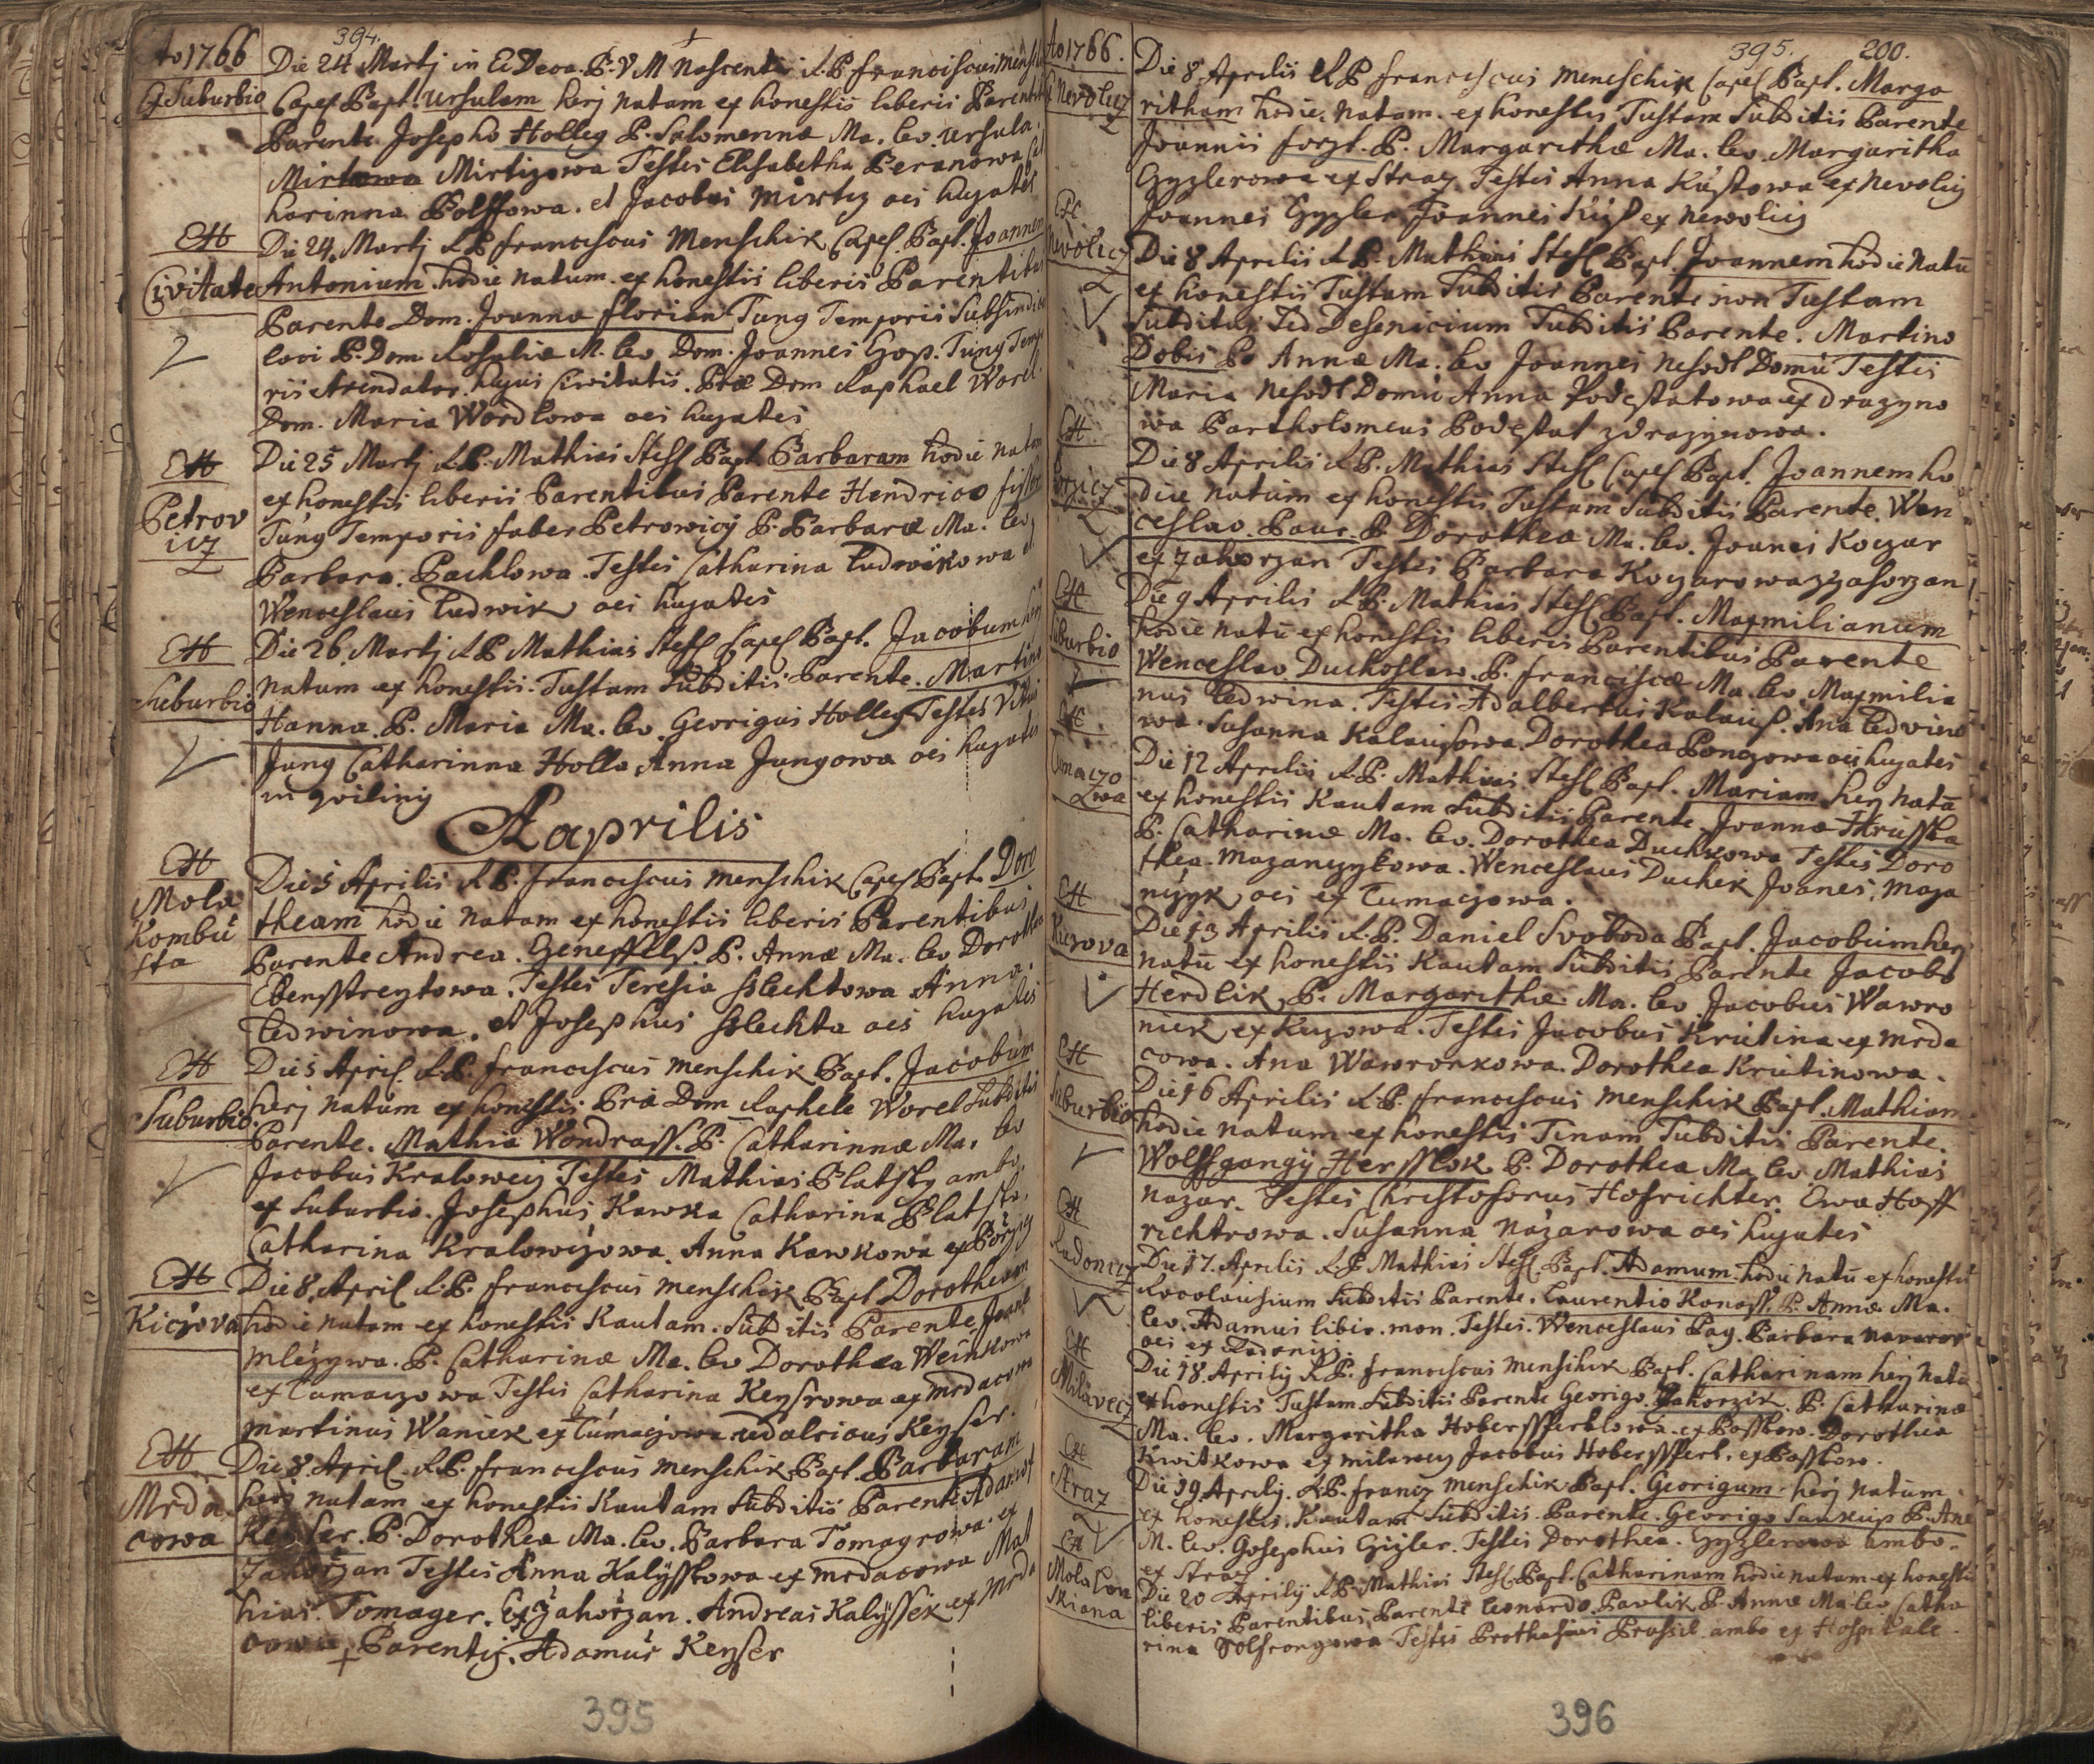 394.
Ao 1766
Ex Suburbio
Die 24 Martij in Ec. Deca. B. V M Nascentis A. R. P. Franciscus Mensch
Capel Bapt. Ursulam herj natam ex honestis liberis Parent
Parente Josepho Holleg P. Salomenna Ma. lev. Ursula
Mirtizowa Testes Elisabetha Beranowa
harinna Polssowa. et Jacobus Mirtiz oes hujates
Ex
Civitate
Die 24. Martij A. P. Franciscus Menschik Capel. Bapt. Joannem
Antonium. hodie natum. ex honestis liberis Parentibus
Parente Dom. Joanne Florian Tunq Temporis Subsindico
loci P. Dom Rosalia M. lev. Dom. Joannes Gop. Tunq Tempo
ris Arendator hujus Civitatis. Præ Dom Raphael Worel
Dom. Maria Wordlowa oes hujates
Ex
Petrov
icz
Die 25 Martij A. P. Mathias Stesl Bapt. Barbaram hodie natam
ex honestis liberis Parentibus Parente Hendrico
Tunq Temporis faber Petrowicz P. Barbaræ Ma. lev.
Barbara. Pachlowa. Testes Catharina Ludwikowa et
Wenceslaus Ludwik oes hujates
Ex
Suburbio
Die 26 Martij A. P. Mathias Stesl Capel Bapt. Jacobum herj
natum ex honestis. Tustam Subditis Parente. Martino
Hanna. P. Maria Ma. lev. Georigus Holleg Testes Vitus
Jung Catharinna Holla Anna Jungowa oes hujates
Aaprilis
Ex
Mola
Kombu
sta
Die 5 Aprilis A. P. Franciscus Menschik Capel Bapt. Doro
theam hodie natam ex honestis liberis Parentibus
Parente Andrea. P. Annæ Ma. lev Dorothea
Ebensstreytowa. Testes Teresia Sslechtowa Anna.
Ledwinowa. et Josephus Sslechta oes hujates
Ex
Suburbio
Die 5 April. A. P. Franciscus Menschik Bapt. Jacobum
herj natum ex honestis Præ Dom Raphele Worel Subditis
Parente. Mathia Wondrass. P. Catharinnæ Ma. lev
Jacobus Kraloweij Testes Mathias Platsky ambo
ex Suburbio. Josephus Kawka Catharina Platska.
Catharina Kralowczowa. Anna Kawkowa ex Pořziz
Ex
Kiczova
Die 8. April A. P. Franciscus Menschik Bapt Dorotheam
hodie natam ex honestis Kautam. Subditis Parente Joanne
Mlezywa. P. Catharinæ Ma. lev Dorothea
ex Tumaczowa Testes Catharina Keysrowa ex Mrdacowa
Martinus Waniek ex Tumaczowa Udalricus Keyser.
Ex
Mrda
cowa
Die 8. April. A. P. Franciscus Menschik Bapt. Barbaram
herj natam ex honestis Kautam Subditis Parente Adamo
Keyser. P. Dorothea Ma. lev. Barbara Tomagrowa. ex
Zahořzan Testes Anna Kalysskowa ex Mrdacowa Mat
hias. Tomager. Ex Zahořzan. Andreas Kalyssek ex Mrda
cowa + Parentis. Adamus Keyser
395
395. 200.
Ao 1766.
Ex Nevolicz
Die 8 Aprilis A P Franciscus Menschik Capel Bapt. Marga
ritham hodie. natam. ex honestis Tustam Subditis Parente
Joannis Forzt. P. Margarithæ Ma. lev Margaritha
Gyzlerowa ex Straz Testes Anna Kustowa ex Nevolicz
Joannes Gyzler. Joannes ex Newolicz
Ex
Nevolicz
Die 8 Aprilis A P. Mathias Stesl Bapt. Joannem hodie natū
ex honestis Tustam Subditis Parente non Tustam
Subditus Sed Desenicium Subditis Parente. Martino
Dobis P. Annæ Ma. lev Joannes Nehodl Domu Testes
Maria Nehodl Domu Anna Podestatowa ex Drazyno
wa Bartholomeus Podestat z Drazynowa.
Ex
Die 8 Aprilis A P. Mathias Stesl Capel Bapt. Joannem ho
die natum ex honestis Tustam Subditis Parente. Wen
ceslao. Paur. P. Dorothea Ma. lev. Joanes Koczar
ex Zahorzan Testes Barbara Koczarowa z Zahorzan
Ex
Suburbio
Die 9 Aprilis A P. Mathias Stesl Bapt. Maxmilianum
hodie natū ex honestis liberis Parentibus Parente
Wenceslao Duchoslaw. P. Franciscæ Ma. lev. Maxmilia
nus Ledwina. Testes Adalbertus Kalaus. Ana Ledwino
wa. Susanna Kalausowa. Dorothea Ponczowa oes hujates
Ex
Tumaczo
wa
Die 12 Aprilis A. P. Mathias Stesl Bapt. Mariam herj natā
ex honestis Kautam Subditis Parente Joanne Hrusska
P. Catharinæ Ma. lev. Dorothea Duchkowa Testes Doro
thea. Mazanczykowa. Wenceslaus Duchek Joanes, Maza
nczyk oes ex Tumaczowa.
Ex
Kiczova
Die 13 Aprilis A. P. Daniel Svoboda Bapt. Jacobum herj
natū ex honestis Kautam Subditis Parente Jacobo
Herdlik P. Margarithæ Ma. lev. Jacobus Wawro
niek ex Kiczowa. Testes Jacobus Krutina ex Mrda
cowa. Ana Wawronkowa. Dorothea Krutinowa.
Ex
Suburbio
Die 16 Aprilis A. P. Franciscus Menschik Bapt. Mathiam
hodie natum ex honestis Tinam Subditis Parente.
Wolffgangÿ Hersslok P. Dorothea Ma. lev Mathias
Nazar. Testes Christoforus Hofrichter. Ewa Hoff
richtrowa. Susanna Nazarowa oes hujates
Ex
Radonicz
Die 17. Aprilis A. P. Mathias Stesl. Bapt. Adamum. hodie natū ex honestis
Subditis Parente. Laurentio Konass. P. Annæ Ma.
lev. Adamus libis. mon. Testes. Wenceslaus Pag. Barbara
oes ex Radonicz.
Ex
Milavecz
Die 18. Aprilij A. P. Franciscus Menschik Bapt. Catharinam herj natā
ex honestis Tustam. Subditis Parente Georigo. Zahorzik. P. Catharinæ
Ma. lev. Margaritha Hoberssferklowa. ex Passkow. Dorothea
Kwitkowa ex Milawecz Jacobus Hoberssferl. ex Passkow.
Ex
Straz
Die 19. Aprilij. A. P. Francz Menschik Bapt. Georigum. herj natum.
ex honestis. Kautam Subditis. Parente. Georigo Saukup P. Ane
M. lev. Gosephus Gizler. Testes Dorothea. Gyzlerowa ambo.
ex Straz
Ex
Mola Con
skiana
Die 20 Aprilij A P. Mathias Stesl. Bapt. Catharinam hodie natam ex honestis
liberis Parentibus, Parente Leonardo. Pavlik P. Annæ Ma. lev Catha
rina Testes Prothasius Prusil ambo ex Hospitale.
396